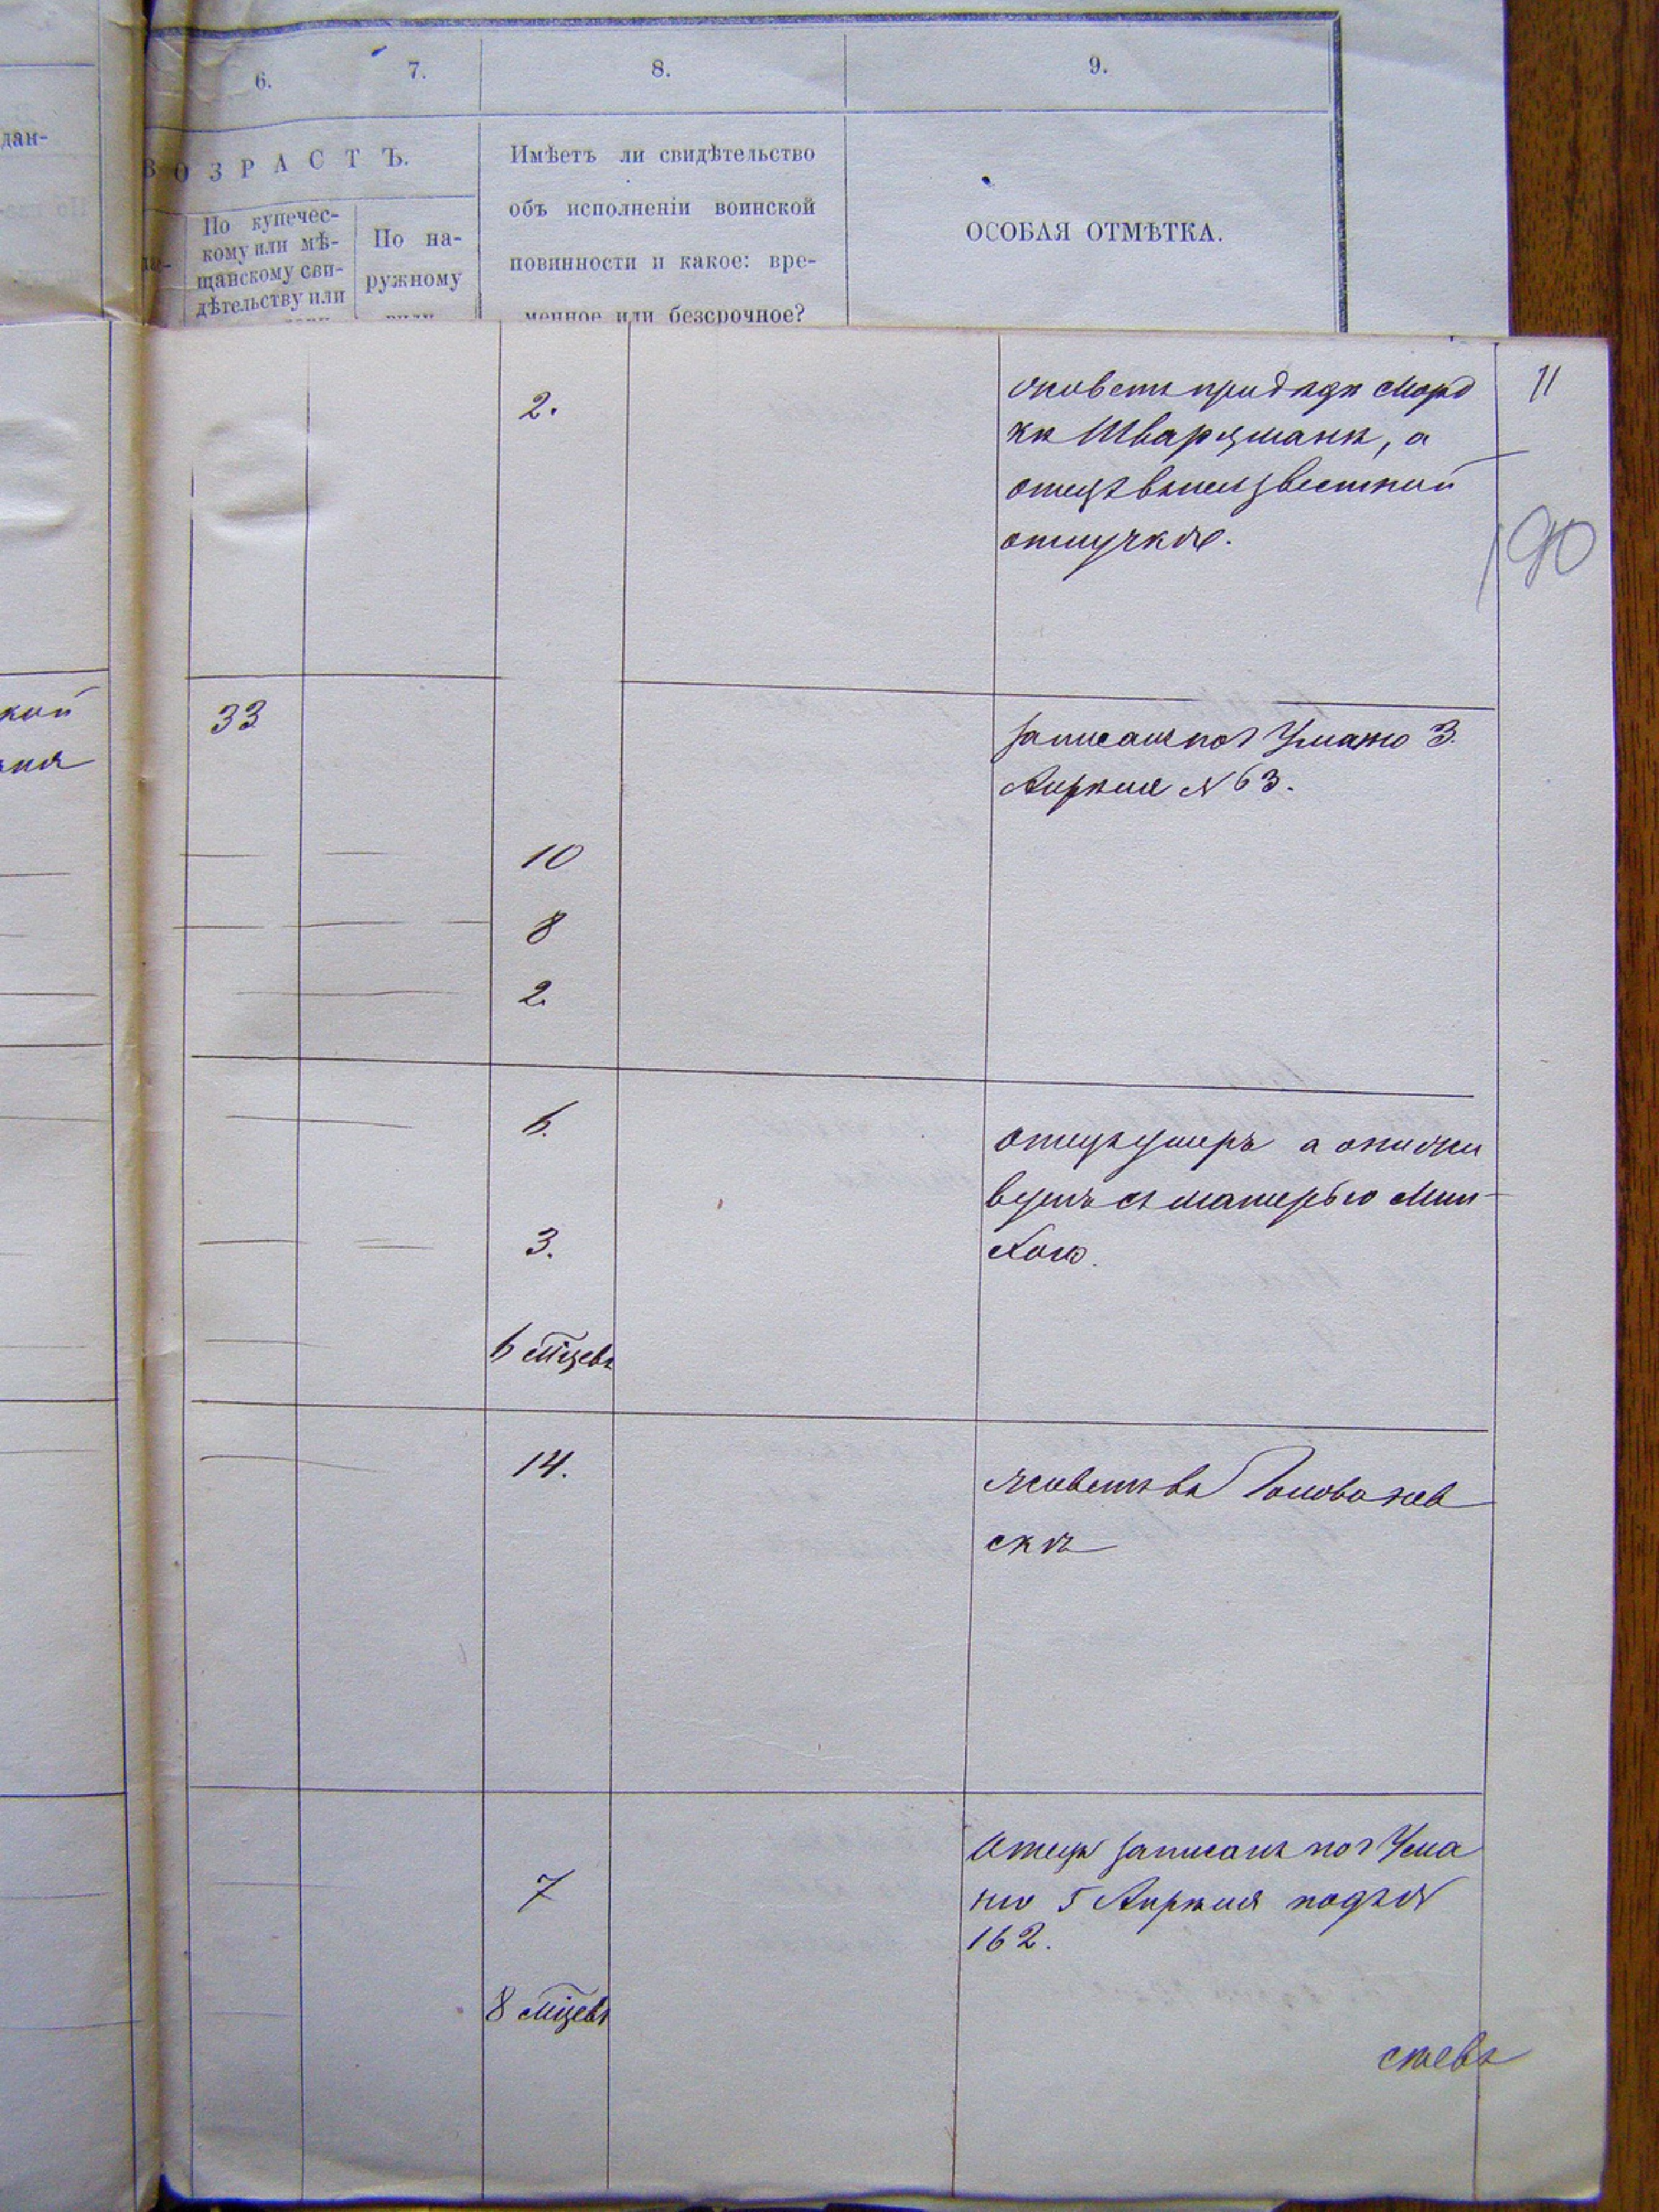 6.
7.
8.
9.
дан-
ВОЗРАСТЪ.
По купечес-
кому или мѣ-
щанскому сви-
дѣтельству или
По на-
ружному
виду
Имѣетъ ли свидѣтельство
объ исполненіи воинской
повинности и какое: вре-
менное или безсрочное?
ОСОБАЯ ОТМѢТКА.
2.
живетъ при дядѣ Морд
кѣ Шварцманѣ, а
отецъ въ неизвестной
отлучкѣ.
11
90
кой
33
записанъ по г Уманю 3
Апрѣля №63.
10
8
2.
6.
отецъ умеръ а они жи
вутъ съ матерью Мин-
3.
6 мцевъ
14.
живетъ въ Голованев
скѣ
Отецъ записанъ по г Ума
7
ню 5 Апрѣля подъ №
162.
8 мцевъ